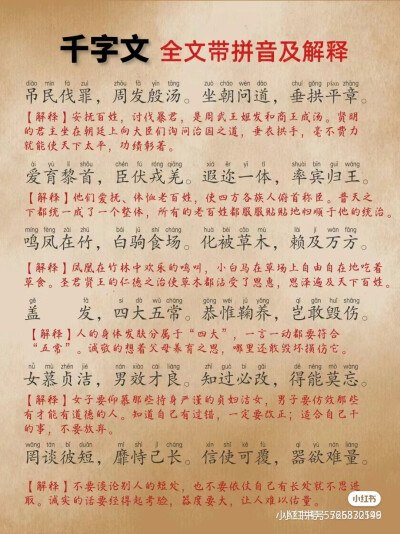 千字文 全文带拼音及解释
diào mín fá zuì zhōu fā yīn tāng zuò cháo wèn dào chuí gǒng píng zhāng
吊民伐罪，周发殷汤。坐朝问道，垂拱平章。
【解释】安抚百姓，讨伐暴君，是周武王姬发和商王成汤。贤明
的君主坐在朝廷上向大臣们询问治国之道，垂衣拱手，毫不费力
就能使天下太平，功绩彰著。
ài yù lí shǒu chén fú róng qiāng xiá ěr yī tǐ shuài bīn guī wáng
爱育黎首，臣伏戎羌。遐迩一体，率宾归王。
【解释】他们爱抚、体恤老百姓，使四方各族人俯首称臣。普天之
下都统一成了一个整体，所有的老百姓都服服贴贴地归顺于他的统治。
míng fèng zài zhú bái jū shí chǎng huà bèi cǎo mù lài jí wàn fāng
鸣凤在竹，白驹食场。化被草木，赖及万方。
【解释】凤凰在竹林中欢乐的鸣叫，小白马在草场上自由自在地吃着
草食。圣君贤王的仁德之治使草木都沾受了恩惠，恩泽遍及天下百姓。
gài fà sì dà wǔ cháng gōng wéi jū yǎng qǐ gǎn huǐ shāng
盖 发，四大五常。恭惟鞠养，岂敢毁伤。
【解释】人的身体发肤分属于“四大”，一言一动都要符合
“五常”。诚敬的想着父母养育之恩，哪里还敢毁坏损伤它。
nǚ mù zhēn jié nán xiào cái liáng zhī guò bì gǎi dé néng mò wàng
女慕贞洁，男效才良。知过必改，得能莫忘。
【解释】女子要仰慕那些持身严谨的贞妇洁女，男子要仿效那些
有才能有道德的人。知道自己有过错，一定要改正；适合自己干
的事，不要放弃。
wǎng tán bǐ duǎn mǐ shì jǐ cháng xìn shǐ kě fù qì yù nán liáng
罔谈彼短，靡恃己长。信使可覆，器欲难量。
【解释】不要谈论别人的短处，也不要依仗自己有长处就不思进
取。诚实的话要经得起考验，器度要大，让人难以估量。
小红书